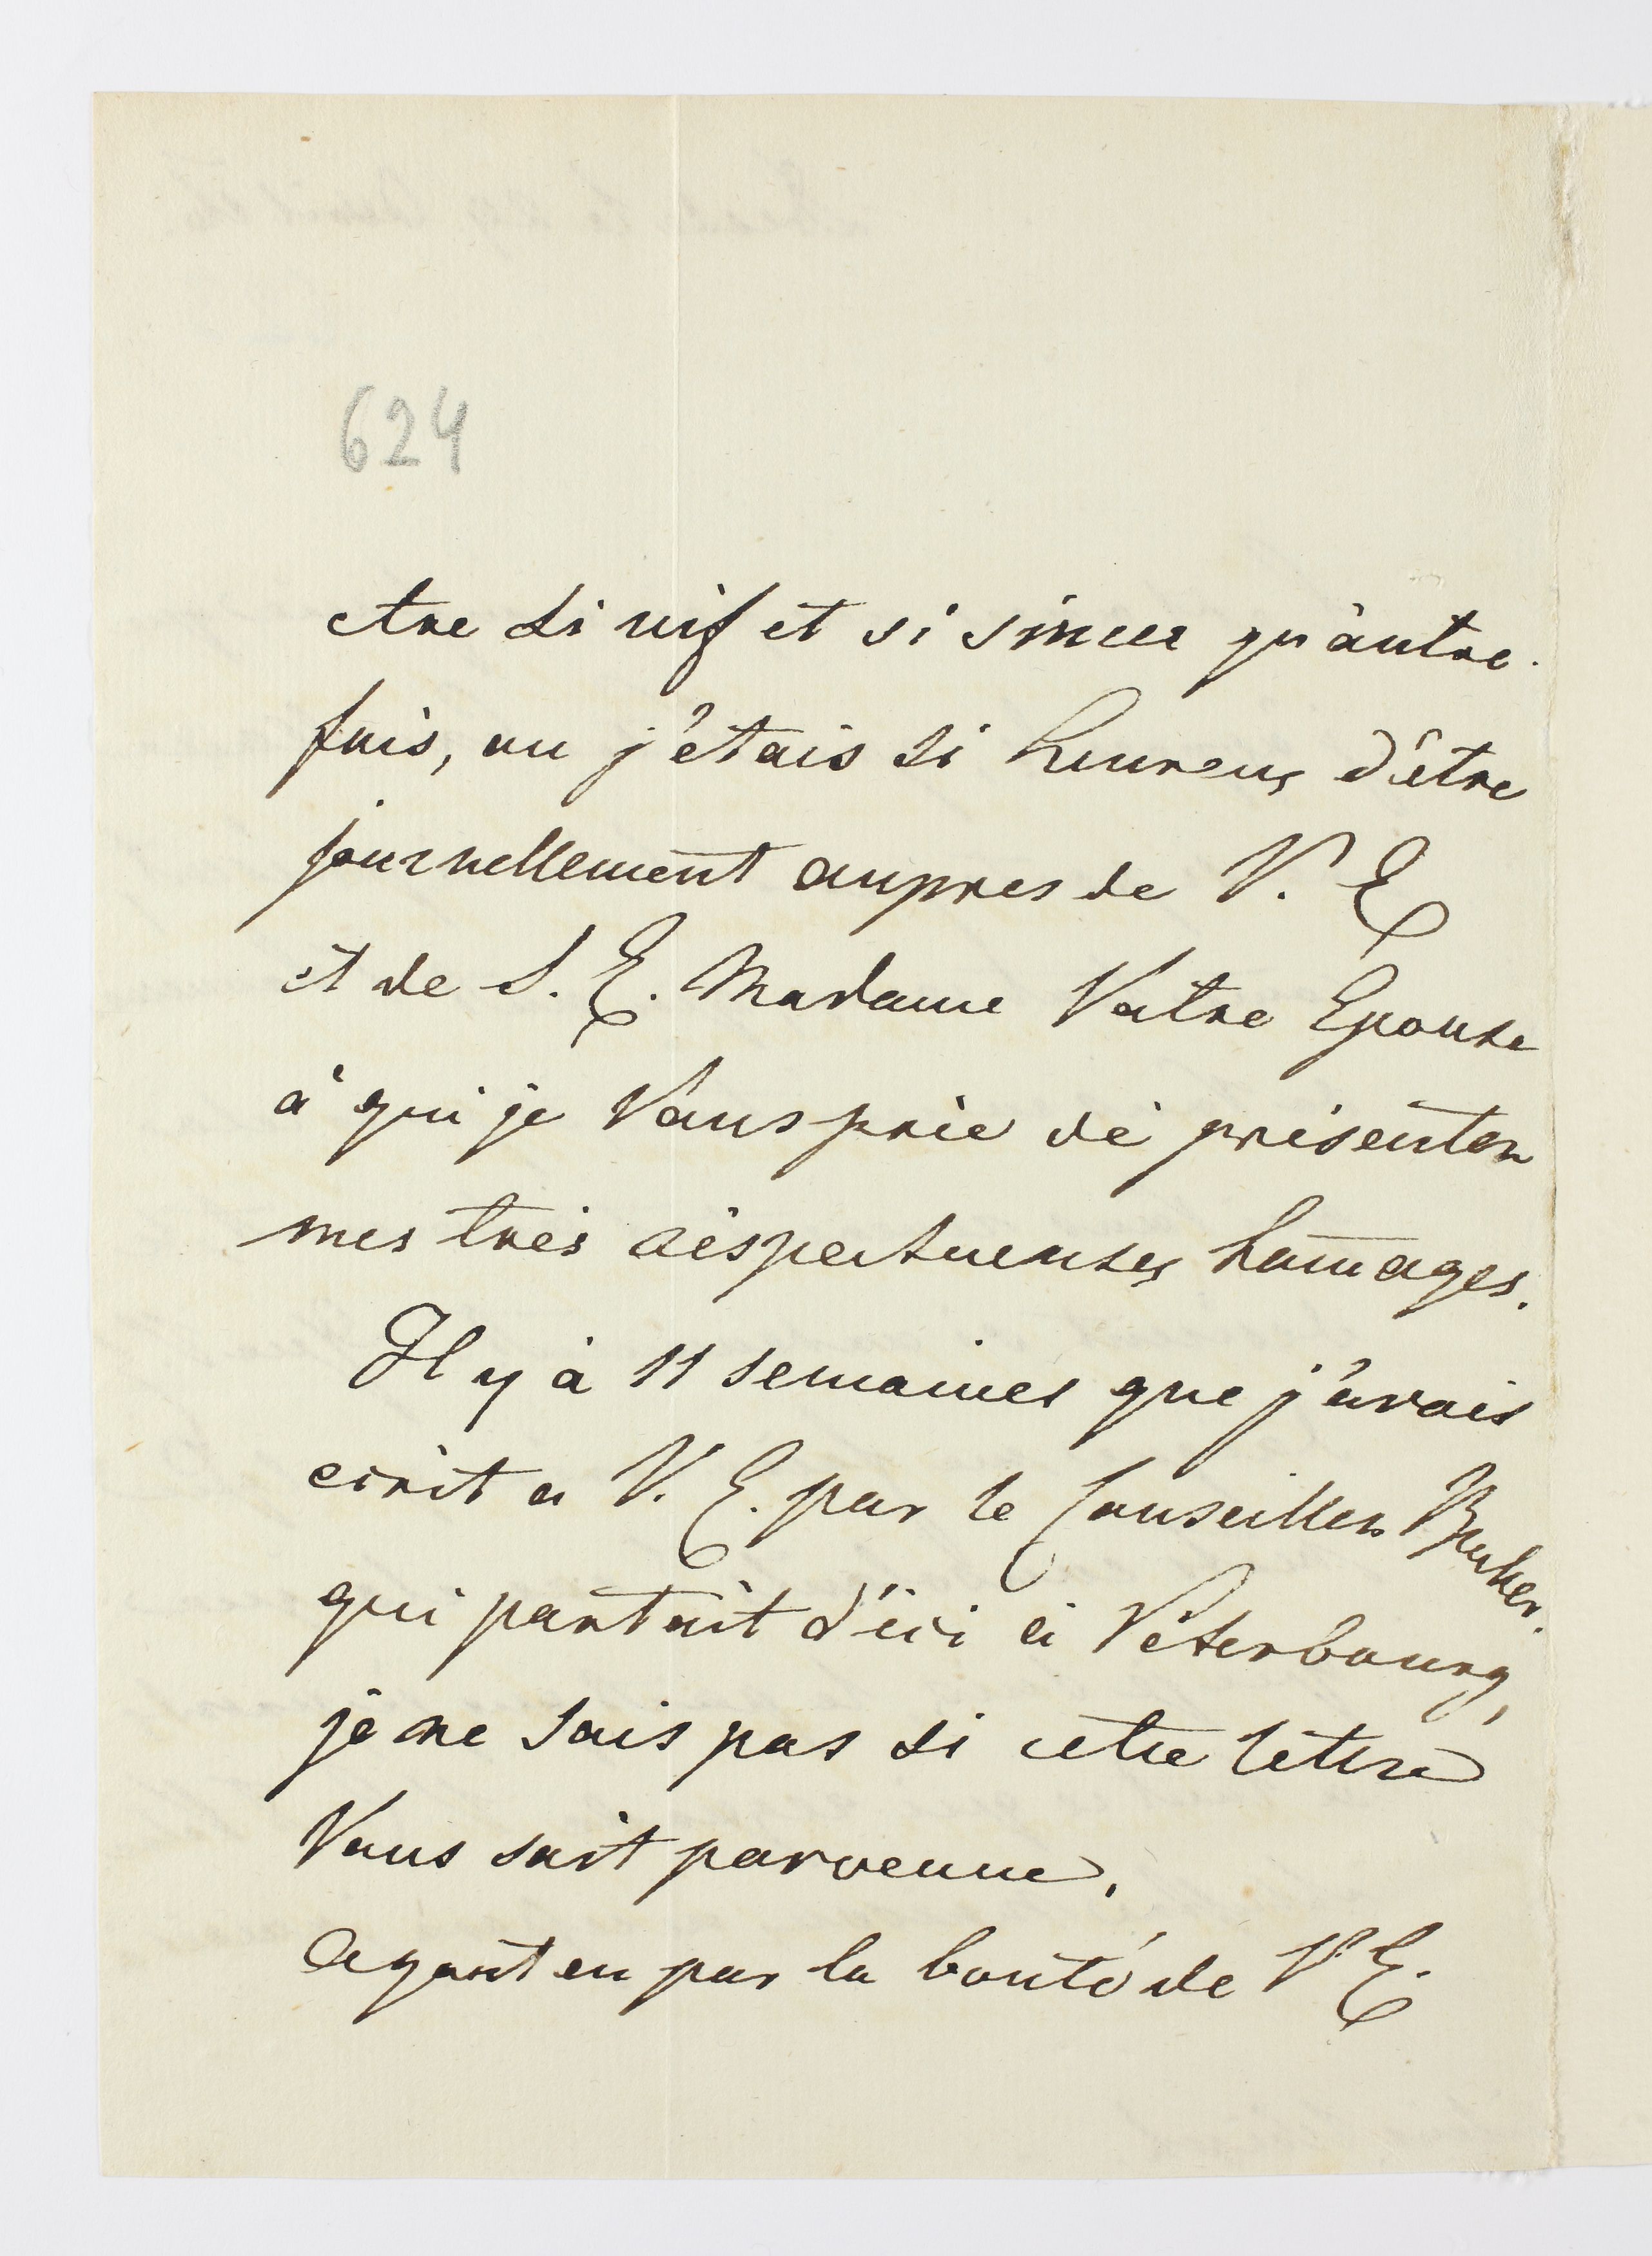 624
etre si vif et si sincer qu'àutre
fois, ou j'étais si heureux d'être
journellement aupres de V. E
et de S. E. Madame Votre Epouse
à qui je Vous prie de présenter
mes très réspectueuses hom̄ages.
Il y à 11 semaines que j'avais
ecrit a V. E. par le Conseiller
qui partait d'ici à Péterbourg,
je ne sais pas si cette lettre
Vous soit parvenue.
Ayant eu par la bonté de V. E.